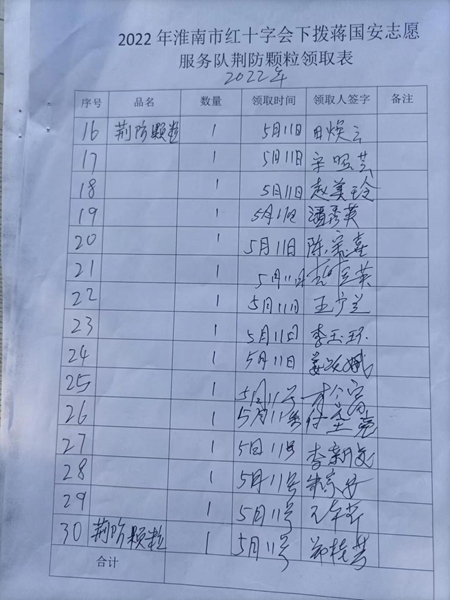 2022年淮南市红十字会下拨蒋国安志愿
服务队荆防颗粒领取表
2022年
序号 品名 数量 领取时间 领取人签字 备注
16 荆防颗粒 1 5月11日 田焕云
17 1 5月11日
18 1 5月11日 赵美玲
19 1 5月11日 潘秀英
20 1 5月11日 陈宗喜
21 1 5月11日
22 1 5月11日 王广兰
23 1 5月11日 李玉环
24 1 5月11日
25 1 5月11号
26 1 5月11号
27 1 5月11号
28 1 5月11号
29 1 5月11号
30 荆防颗粒 1 5月11号 郑桂芳
合计